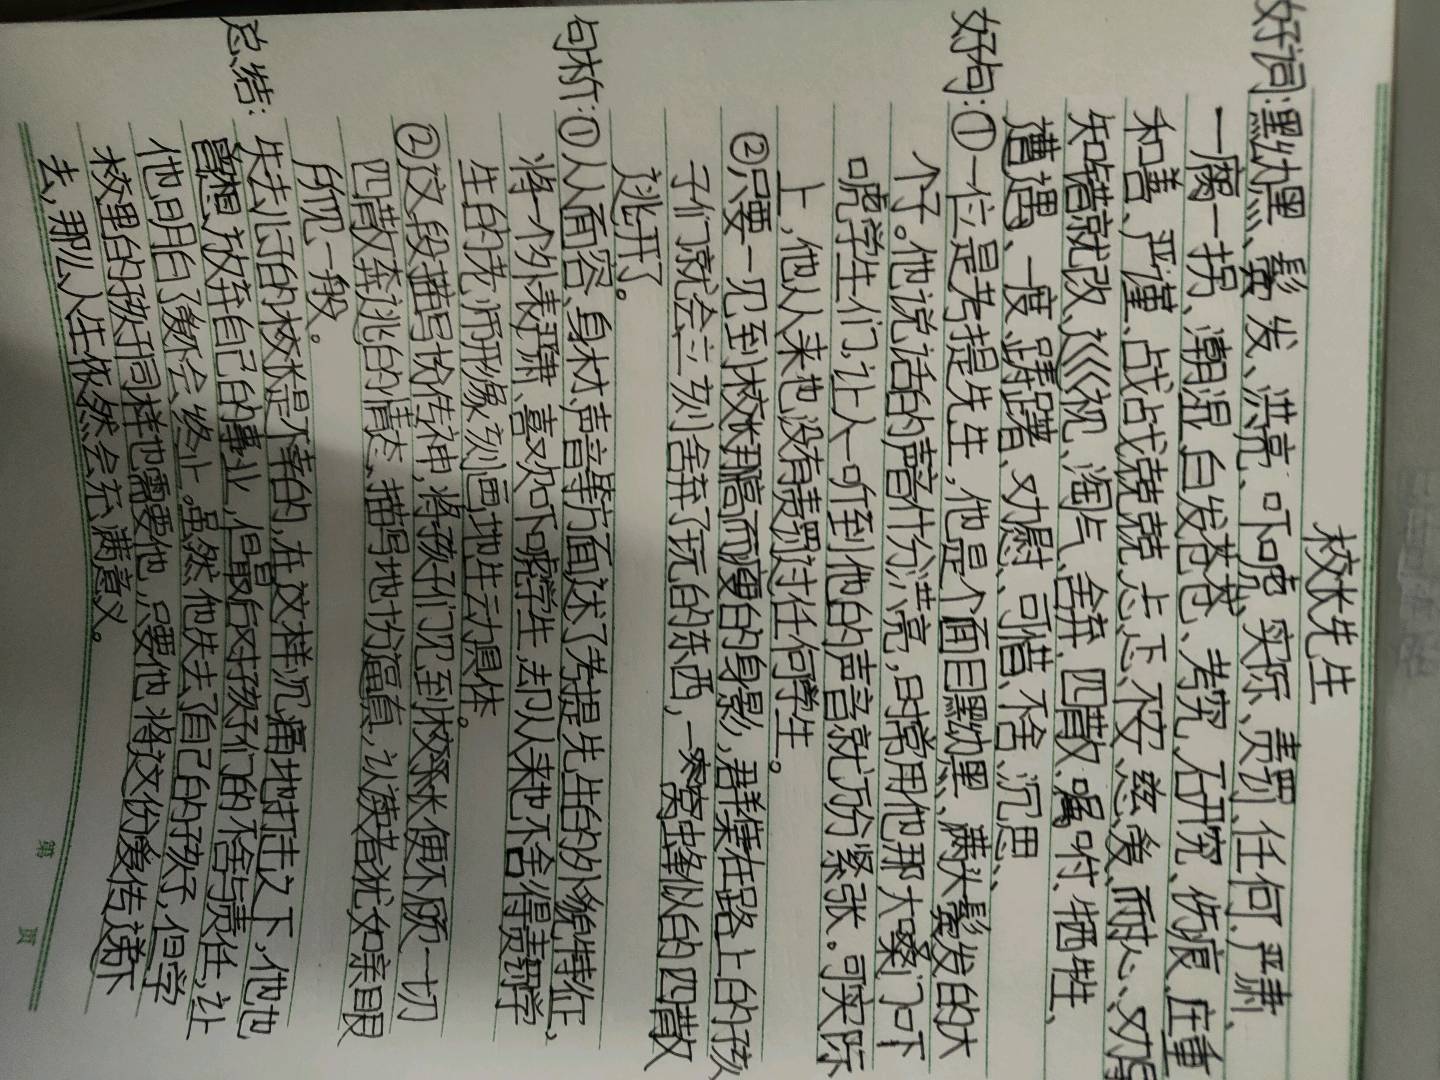 校长先生
好词:黑幼黑、鬈发、洪亮、吓唬、实际、责罚、任何、严肃、
一瘸一拐、潮湿、白发苍苍、考究、研究、伤痕、庄重
和善、严谨、战战兢兢、忐忑不安、慈爱、耐心、劝
知错就改、巡视、淘气、舍弃、四散、嘱咐、牺牲、
遭遇、一度、踌躇、劝慰、可惜、不舍、沉思、
好句:①一位是考提先生,他是个面目黑幼黑、满头鬈发的大
个子。他说话的声音什分洪亮,日常用他那大嗓门吓
唬学生们,让人一听到他的声音就万分紧张。可实际
上,他从来也没有责罚过任何学生。
②只要一见到校长那高而瘦的身影,群集在路上的孩
子们就会立刻舍弃了玩的东西,一窝蜂似的四散
逃开了。
句析:①从面容、身材、声音等方面述了考提先生的外貌特征,
将一个外表严肃、喜欢吓唬学生,却从来也不舍得责罚学
生的老师形象刻画地生动具体。
②这段描写份传神,将孩子们见到校长来便不顾一切
四散奔逃的情态,描写地十分逼真,让读者犹如亲眼
所见一般。
总结:失去儿子的校长是不幸的,在这样沉痛地打击之下,他也
曾想放弃自己的事业,但最后对孩子们的不舍与责任,让
他明白了傲不会终止。虽然他失去了自己的孩子,但学
校里的孩子同样也需要他,只要他将这份爱传递下
去,那么人生依然会充满意义。
第 页